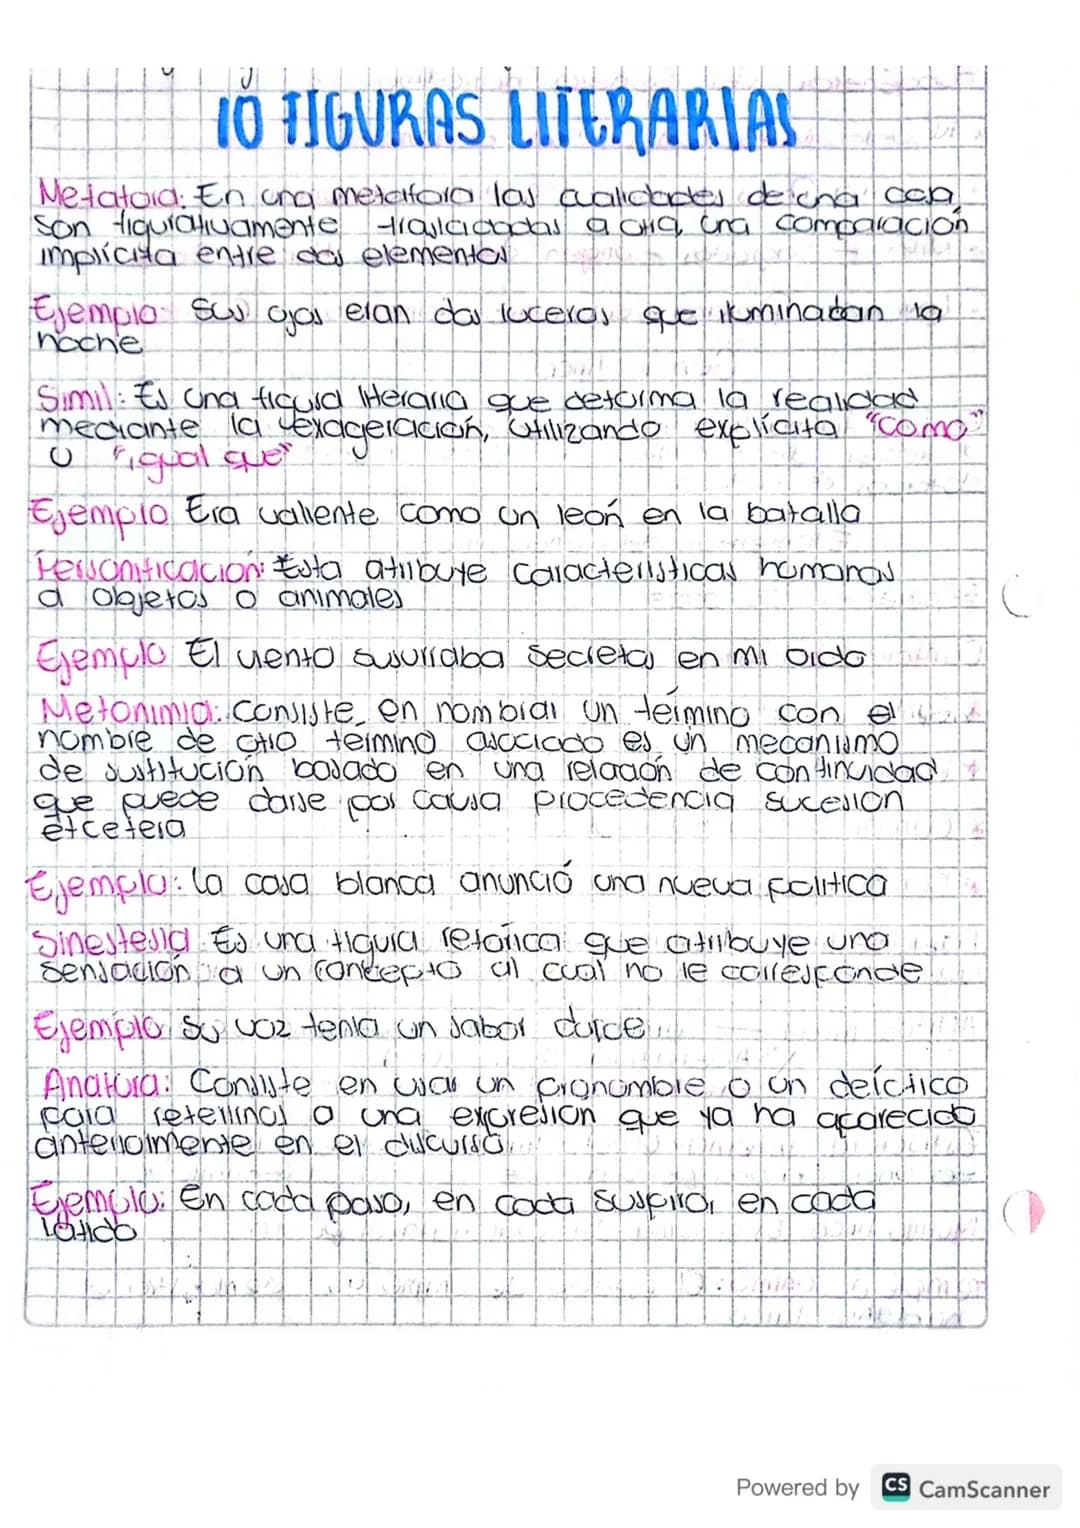 10 FIGURAS LITERARIAS
Metafora: En una metafora las cualidades de una cosa
son figurativamente trasladadas a otra, una comparación
implícita entre dos elementos
Ejemplo: Sus ojos eran dos luceros que iluminaban la
noche
Simil: Es una figura literaria que deforma la realidad
mediante la exageración, utilizando explícita "como"
U "igual que"
Ejemplo Era valiente como un león en la batalla
Personificacion: Esta atribuye caracteristicas humanas
a objetos o animales
Ejemplo El viento susurraba secretos en mi oido
Metonimia: Consiste en nombrar un término con el
nombre de otro término asociado es un mecanismo
de sustitución basado en una relación de continuidad
que puede darse por causa procedencia sucesion
etcetera
Ejemplo: La casa blanca anunció una nueva politica
Sinestesia Es una figura retórica que atribuye una
sensación a un concepto al cual no le corresponde
Ejemplo Su voz tenia un sabor dulce
Anafora: Consiste en usar un pronombre o un deíctico
para referirnos a una expresion que ya ha aparecido
anteriormente en el discurso
Ejemplo: En cada paso, en cada suspiro, en cada
latido
Powered by CS CamScanner